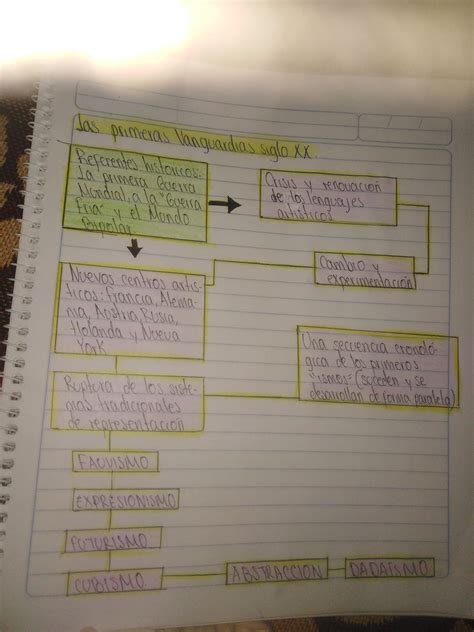 Las primeras Vanguardias siglo XX.
Referentes históricos:
La primera Guerra
Mundial, a la "Guerra
Fría" y el Mundo
Bipolar
Crisis y renovación
de los lenguajes
artísticos
Cambio y
experimentación
Nuevos centros artís-
ticos: Francia, Alema-
nia, Austria, Rusia,
Holanda y Nueva
York
Una secuencia cronoló-
gica de los primeros
"ismos" (suceden y se
desarrollan de forma paralela)
Ruptura de los siste-
mas tradicionales
de representación
FAUVISMO
EXPRESIONISMO
FUTURISMO
CUBISMO
ABSTRACCION
DADAÍSMO